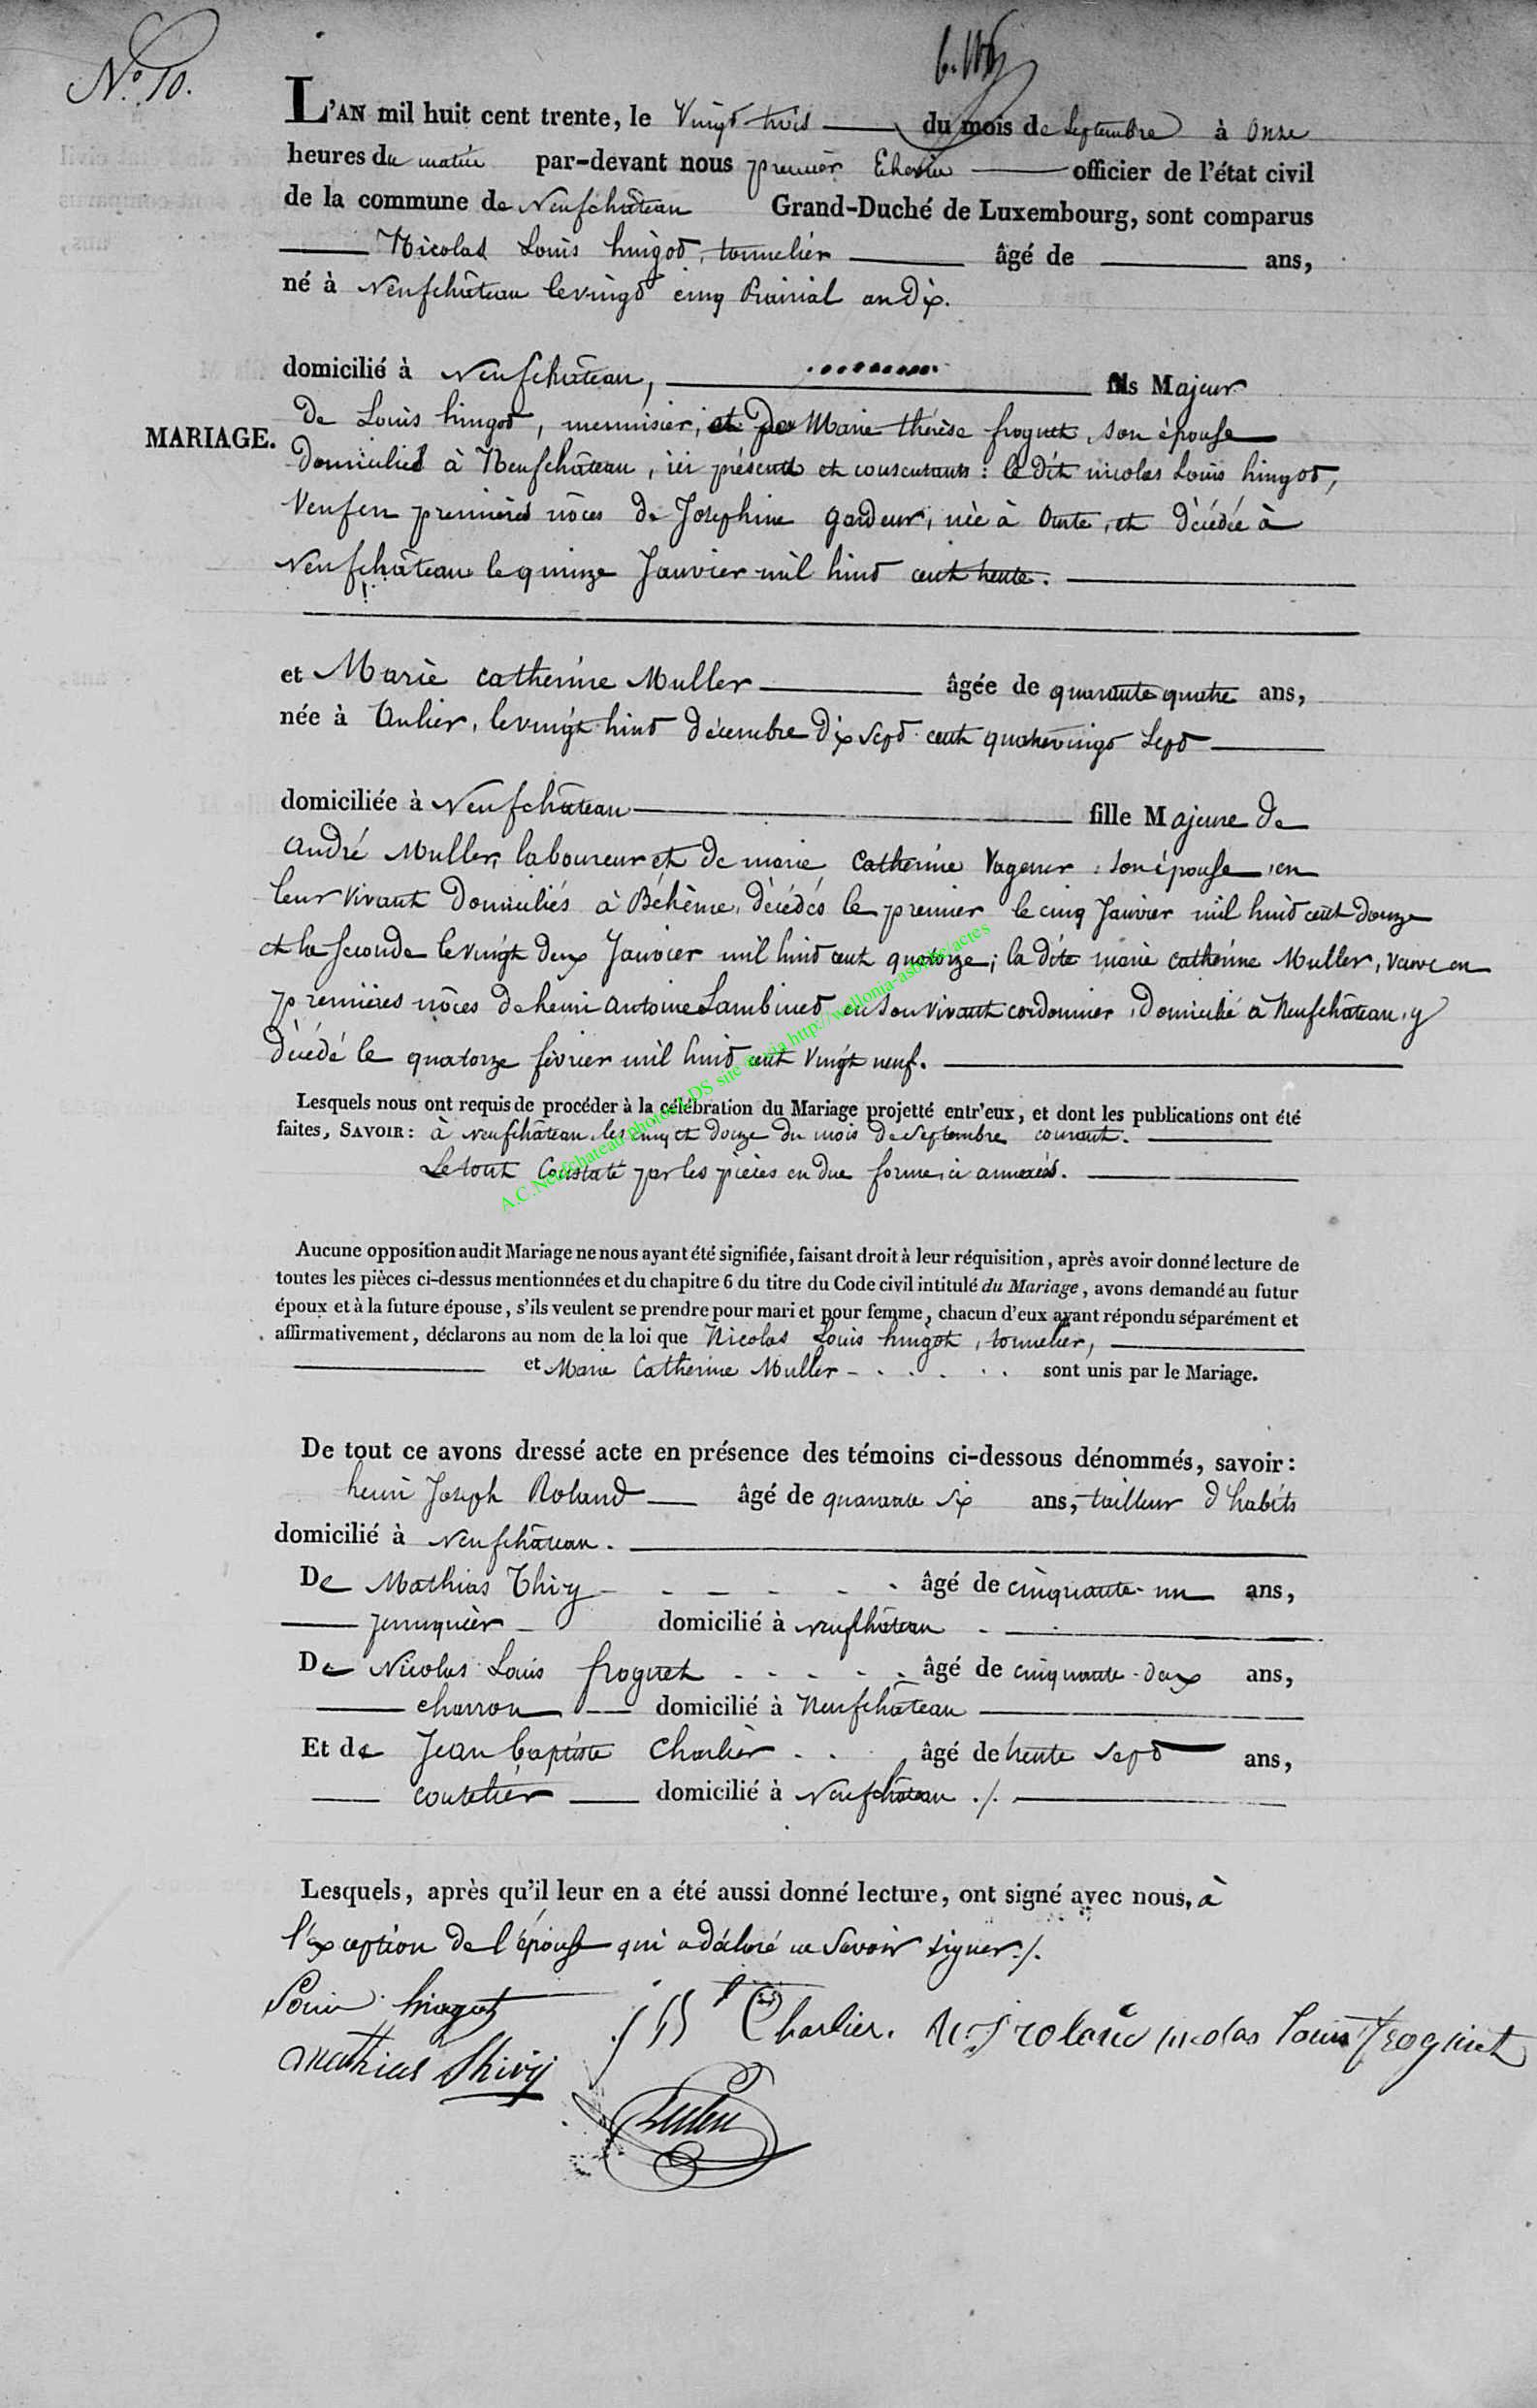 N.° 10.
L'AN mil huit cent trente, le Vingt trois du mois de Septembre à Onze
heures du matin par-devant nous premier Echevin officier de l'état civil
de la commune de Neufchâteau Grand-Duché de Luxembourg, sont comparus
Nicolas Louis hingot, tonnelier âgé de ans,
né à Neufchâteau le vingt cinq Prairial an dix.
domicilié à Neufchâteau, fils Majeur
MARIAGE.
de Louis hingot, menuisier, et de Marie thérèse froguet, son épouse
domiciliés à Neufchâteau, ici présents et consentants : le dit nicolas Louis hingot,
Veuf en premières nôces de Josephine gardeur, née à , et décédée à
Neufchâteau le quinze Janvier mil huit cent trente.
et Marie catherine Muller âgée de quarante quatre ans,
née à Anlier, le vingt huit décembre dix sept cent quatrevingt sept
domiciliée à Neufchâteau fille Majeure de
André Muller, laboureur et de marie Catherine Vagener, son épouse, en
leur vivant domiciliés à Béhème, décédés le premier le cinq Janvier mil huit cent douze
et la seconde le vingt deux Janvier mil huit cent quatorze ; la dite marie catherine Muller, veuve en
premières nôces de henri antoine Lambinet en son vivant cordonnier, domicilié à Neufchâteau, y
décédé le quatorze février mil huit cent vingt neuf.
Lesquels nous ont requis de procéder à la célébration du Mariage projetté entr'eux, et dont les publications ont été
faites, SAVOIR : à Neufchâteau, les cinq et douze du mois de Septembre courant.
Le tout Constaté par les pièces en due forme, ci annexées.
A.C.Neufchateau photos LDS site via http://wallonia-asbl.be/actes
Aucune opposition audit Mariage ne nous ayant été signifiée, faisant droit à leur réquisition, après avoir donné lecture de
toutes les pièces ci-dessus mentionnées et du chapitre 6 du titre du Code civil intitulé du Mariage, avons demandé au futur
époux et à la future épouse, s'ils veulent se prendre pour mari et pour femme, chacun d'eux ayant répondu séparément et
affirmativement, déclarons au nom de la loi que Nicolas Louis hingot, tonnelier,
et Marie Catherine Muller sont unis par le Mariage.
De tout ce avons dressé acte en présence des témoins ci-dessous dénommés, savoir :
henri Joseph Roland âgé de quarante six ans, tailleur d'habits
domicilié à Neufchâteau.
De Mathias Thiry âgé de cinquante-un ans,
perruquier domicilié à neufchâteau
De Nicolas Louis froguet âgé de cinquante-deux ans,
charron domicilié à Neufchâteau
Et de Jean baptiste Charlier âgé de trente sept ans,
coutelier domicilié à Neufchâteau ./.
Lesquels, après qu'il leur en a été aussi donné lecture, ont signé avec nous, à
l'exception de l'épouse qui a déclaré ne Savoir signer ./.
Louis hingot
J Bte Charlier. H. J roland nicolas louis froguet
Mathias thiry